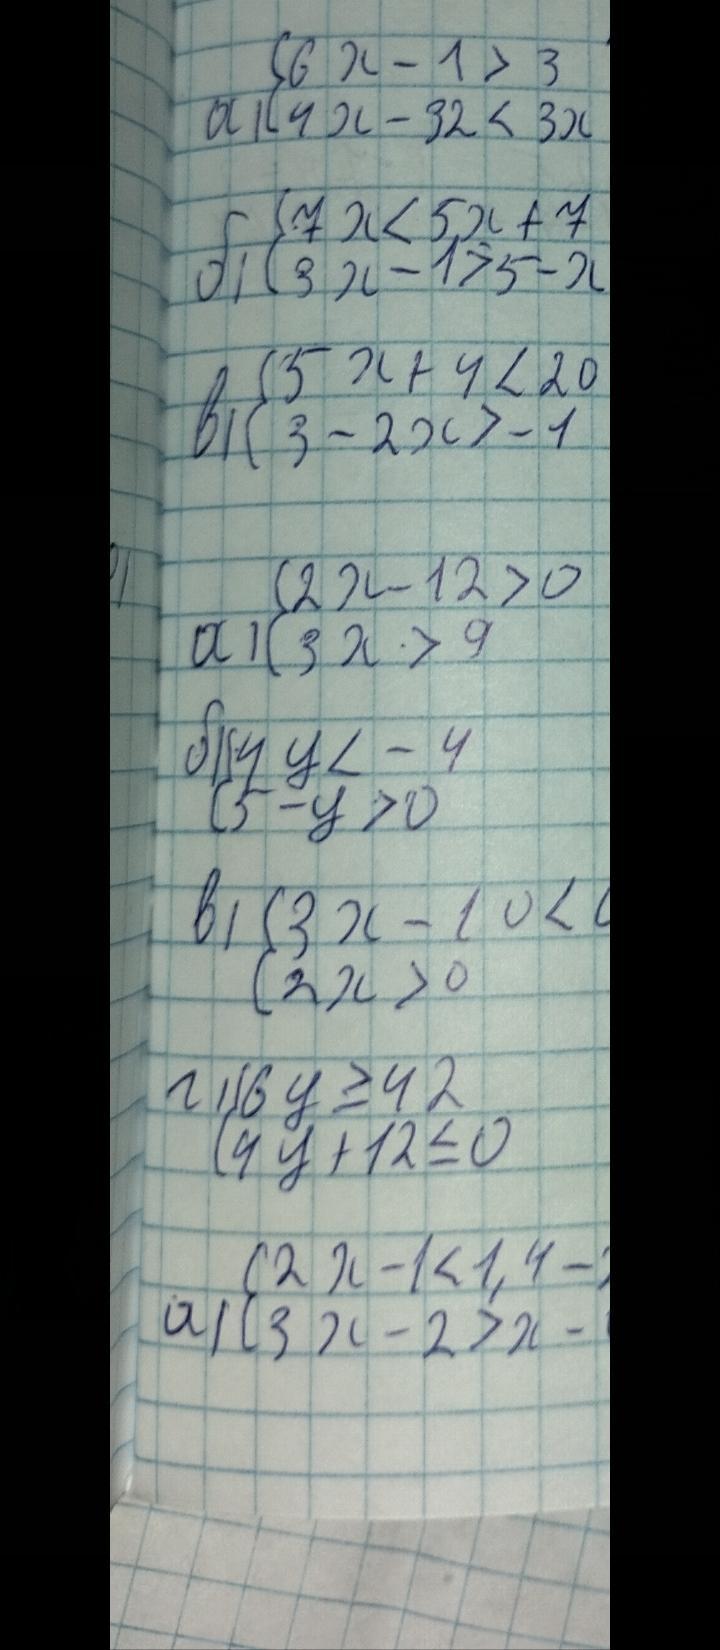 {6x - 1 > 3
а) {4x - 32 < 3x
{7x < 5x + 7
б) {3x - 1 > 5 - x
{5x + 4 < 20
в) {3 - 2x > -1
{2x - 12 > 0
а) {3x > 9
б) {4y < -4
{5 - y > 0
в) {3x - 10 <
{2x > 0
г) {6y ≥ 42
{4y + 12 ≤ 0
{2x - 1 < 1,4 -
а) {3x - 2 > x -